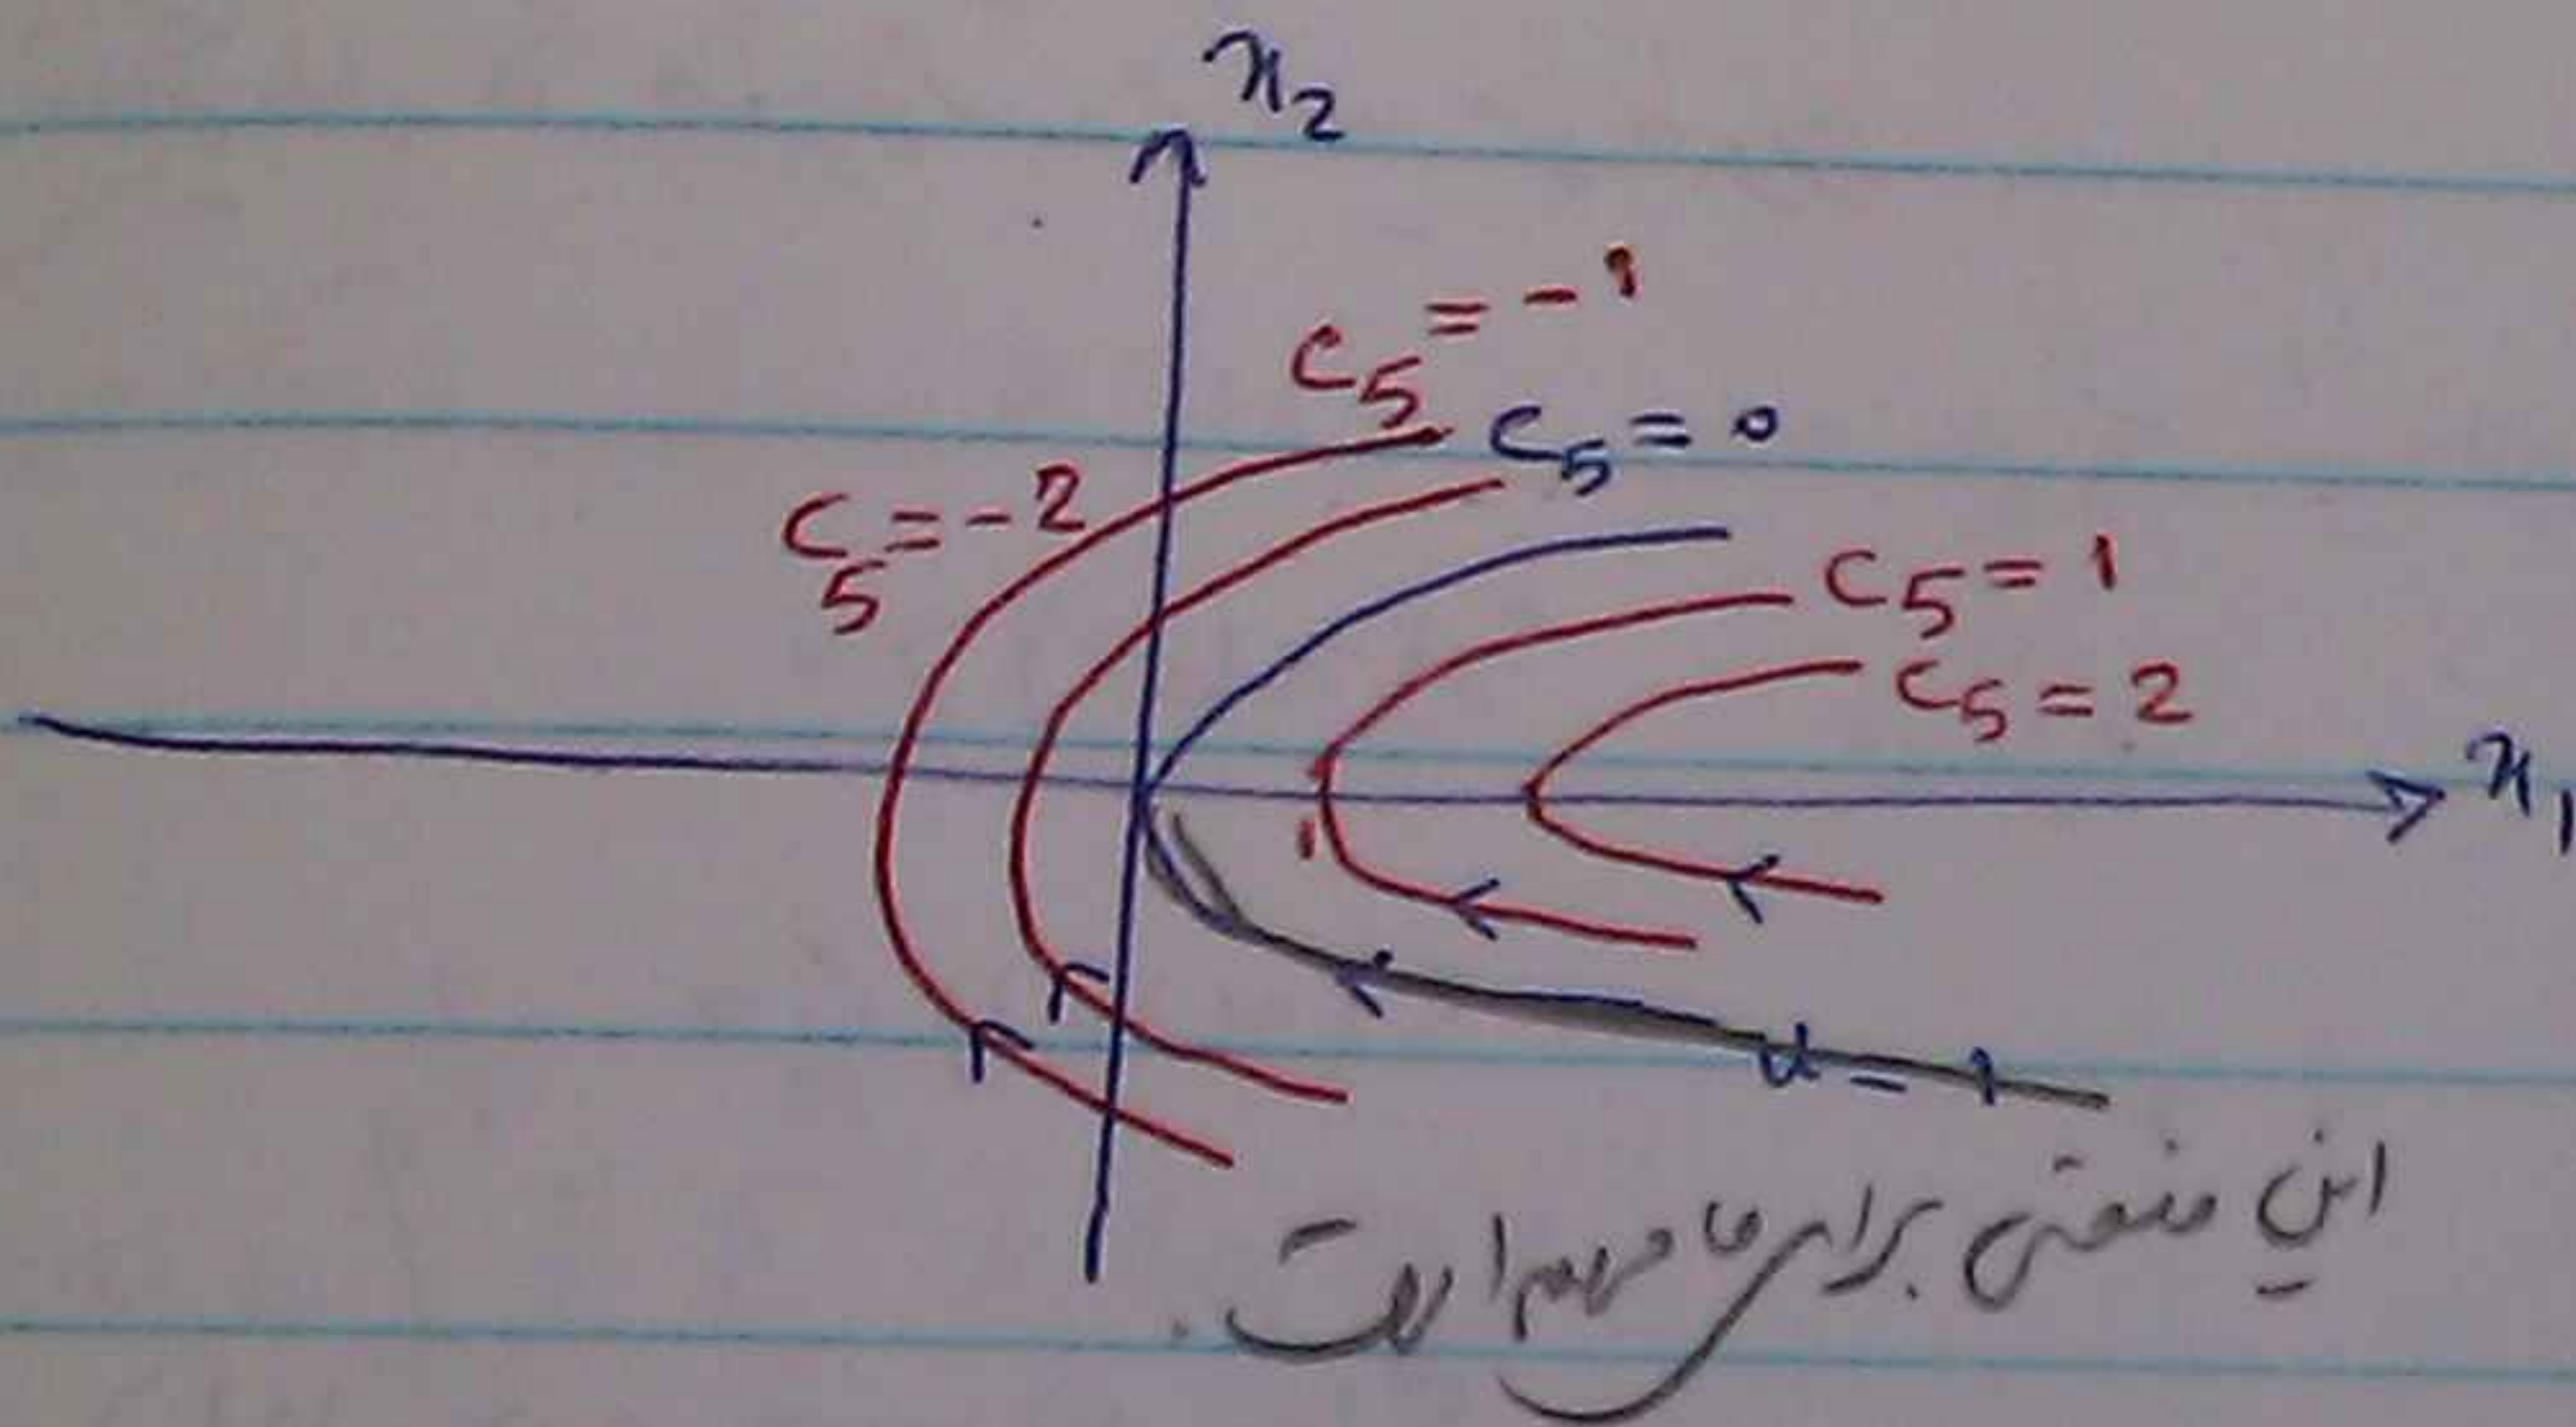 x₂
C₅ = -1
C₅ = 0
C₅ = -2
C₅ = 1
C₅ = 2
x₁
1
u = 1
این منحنی برای ما مهم است.